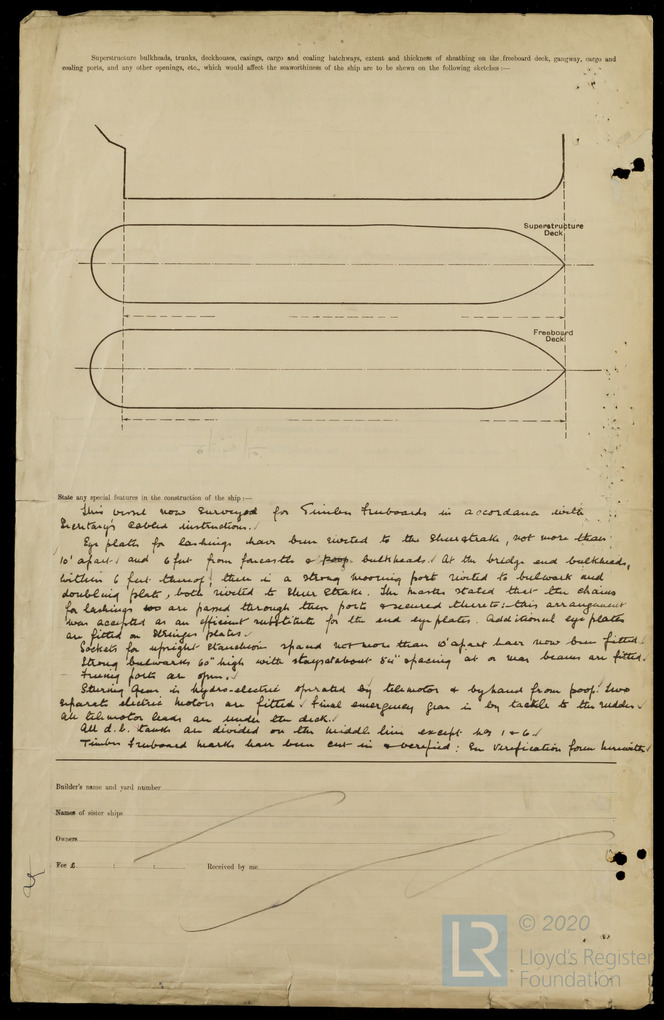 Superstructure bulkheads, trunks, deckhouses, casings, cargo and coaling hatchways, extent and thickness of sheathing on the freeboard deck, gangway, cargo and
coaling ports, and any other openings, etc., which would affect the seaworthiness of the ship are to be shewn on the following sketches :—
Superstructure
Deck
Freeboard
Deck
State any special features in the construction of the ship :—
This vessel now surveyed for Timber Freeboards in accordance with
Secretary's cabled instructions.
Eye plates for lashings have been riveted to the Sheerstrake, not more than
10' apart and 6 feet from forecastle & poop bulkheads. At the bridge end bulkheads,
within 6 feet thereof, there is a strong mooring port riveted to bulwark and
doubling plate, both riveted to Sheer Strake. The master stated that the chains
for lashings are passed through these ports & secured thereto: this arrangement
was accepted as an efficient substitute for the end eye plates. Additional eye plates
are fitted on Stringer plates.
Sockets for upright stanchions spaced not more than 10' apart have now been fitted.
Strong bulwarks 60" high with stays at about spacing at or near beams are fitted.
Freeing ports are open.
Steering Gear is hydro-electric operated by telemotor & by hand from poop. Two
separate electric motors are fitted. Final emergency gear is by tackle to the rudder
All telemotor leads are under the deck.
All d.b. tanks are divided on the middle line except Nos 1 & 6.
Timber Freeboard marks have been cut in & verified: See Verification form herewith
Builder's name and yard number
Names of sister ships
Owners
Fee £ : :
Received by me
LR
© 2020
Lloyd's Register
Foundation